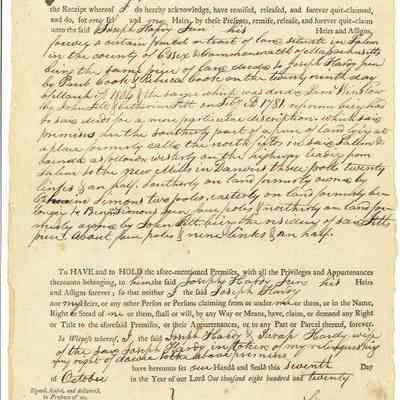 the Receipt whereof I do hereby acknowledge, have remised, released, and forever quit-claimed,
and do, for my self and my Heirs, by these Presents, remise, release, and forever quit-claim
unto the said Joseph Hardy Jun his Heirs and Assigns,
forever, a certain parcel or tract of land situate in Salem
in the county of Essex & Commonwealth of Massachusetts
being the same piece of land deeded to Joseph Hardy
by and Rebecca Cook on the twenty ninth day
of March 1804 & the same which was deeded Saml Winslow
by John Pitts & Catharine Pitts on 1781 reference being had
to said deeds for a more particular description which said
premises in the southerly part of a piece of land lying at
a place formerly called the north fields in said Salem &
bounded as follows westerly on the highway leading from
Salem to the new Mills in Danvers three poles twenty
links & an half. Southerly on land formerly owned by
Simons two poles, easterly on land formerly be-
longing to Benj Simons four poles & northerly on land for-
merly owned by John Pitts being the residue of said Pitts
piece about four poles & nine links & an half.
To HAVE and to HOLD the afore-mentioned Premises, with all the Privileges and Appurtenances
thereunto belonging, to him the said Joseph Hardy Jun his Heirs
and Assigns forever; so that neither I the said Joseph Hardy
nor my Heirs, or any other Person or Persons claiming from or under me or them, or in the Name,
Right or Stead of me or them, shall or will, by any Way or Means, have, claim, or demand any Right
or Title to the aforesaid Premises, or their Appurtenances, or to any Part or Parcel thereof, forever.
In Witness whereof, I, the said Joseph Hardy & Sarah Hardy wife
of the said Joseph Hardy in token of my relinquishing
my right of dower to the above premises
have hereunto set our Hands and Seals this seventh Day
of October in the Year of our Lord One thousand eight hundred and twenty
Signed, Sealed, and delivered,
in Presence of us